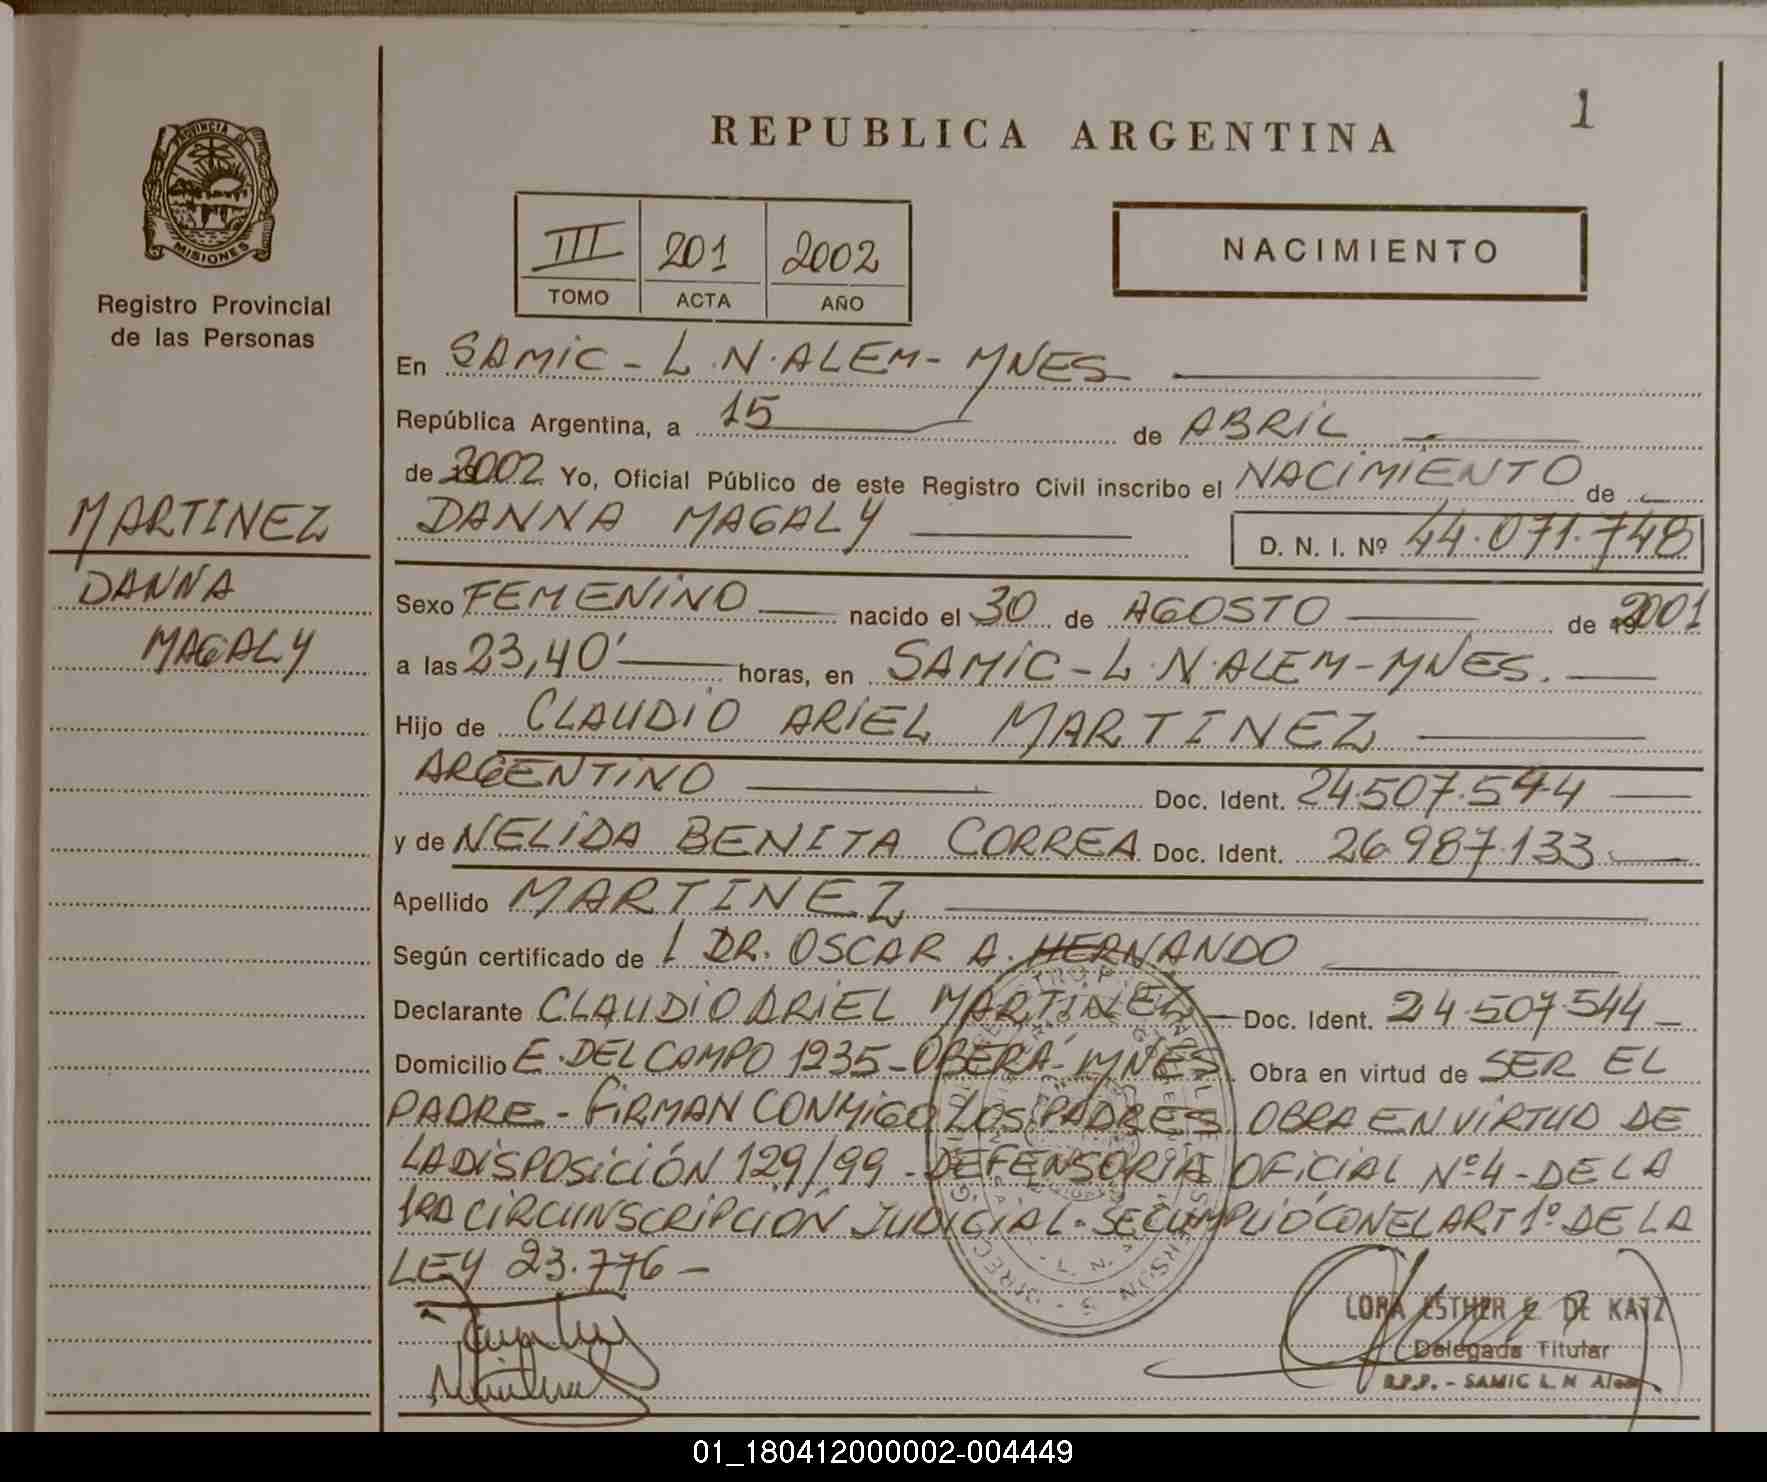 REPUBLICA ARGENTINA
1
PROVINCIA
MISIONES
Registro Provincial
de las Personas
III 201 2002
TOMO ACTA AÑO
NACIMIENTO
En SAMIC - L.N.ALEM - MNES
República Argentina, a 15 de ABRIL
de 2002 Yo, Oficial Público de este Registro Civil inscribo el NACIMIENTO de
MARTINEZ
DANNA MAGALY D. N. I. Nº 44.071.748
DANNA
MAGALY
Sexo FEMENINO nacido el 30 de AGOSTO de 2001
a las 23,40' horas, en SAMIC - L.N.ALEM - MNES.
Hijo de CLAUDIO ARIEL MARTINEZ
ARGENTINO Doc. Ident. 24.507.544
y de NELIDA BENITA CORREA Doc. Ident. 26.987.133
Apellido MARTINEZ
Según certificado de L DR. OSCAR A. HERNANDO
Declarante CLAUDIO ARIEL MARTINEZ Doc. Ident. 24.507.544
Domicilio E. DEL CAMPO 1235 - OBERA - MNES Obra en virtud de SER EL
PADRE - FIRMAN CONMIGO LOS PADRES. OBRA EN VIRTUD DE
LA DISPOSICIÓN 129/99 - DEFENSORIA OFICIAL Nº 4 - DE LA
1RA CIRCUNSCRIPCIÓN JUDICIAL. SE CUMPLIÓ CON EL ART 1º DE LA
LEY 23.776 -
LORA ESTHER E. DE KATZ
Delegada Titular
R.P.P. - SAMIC L.N Alem
01_180412000002-004449